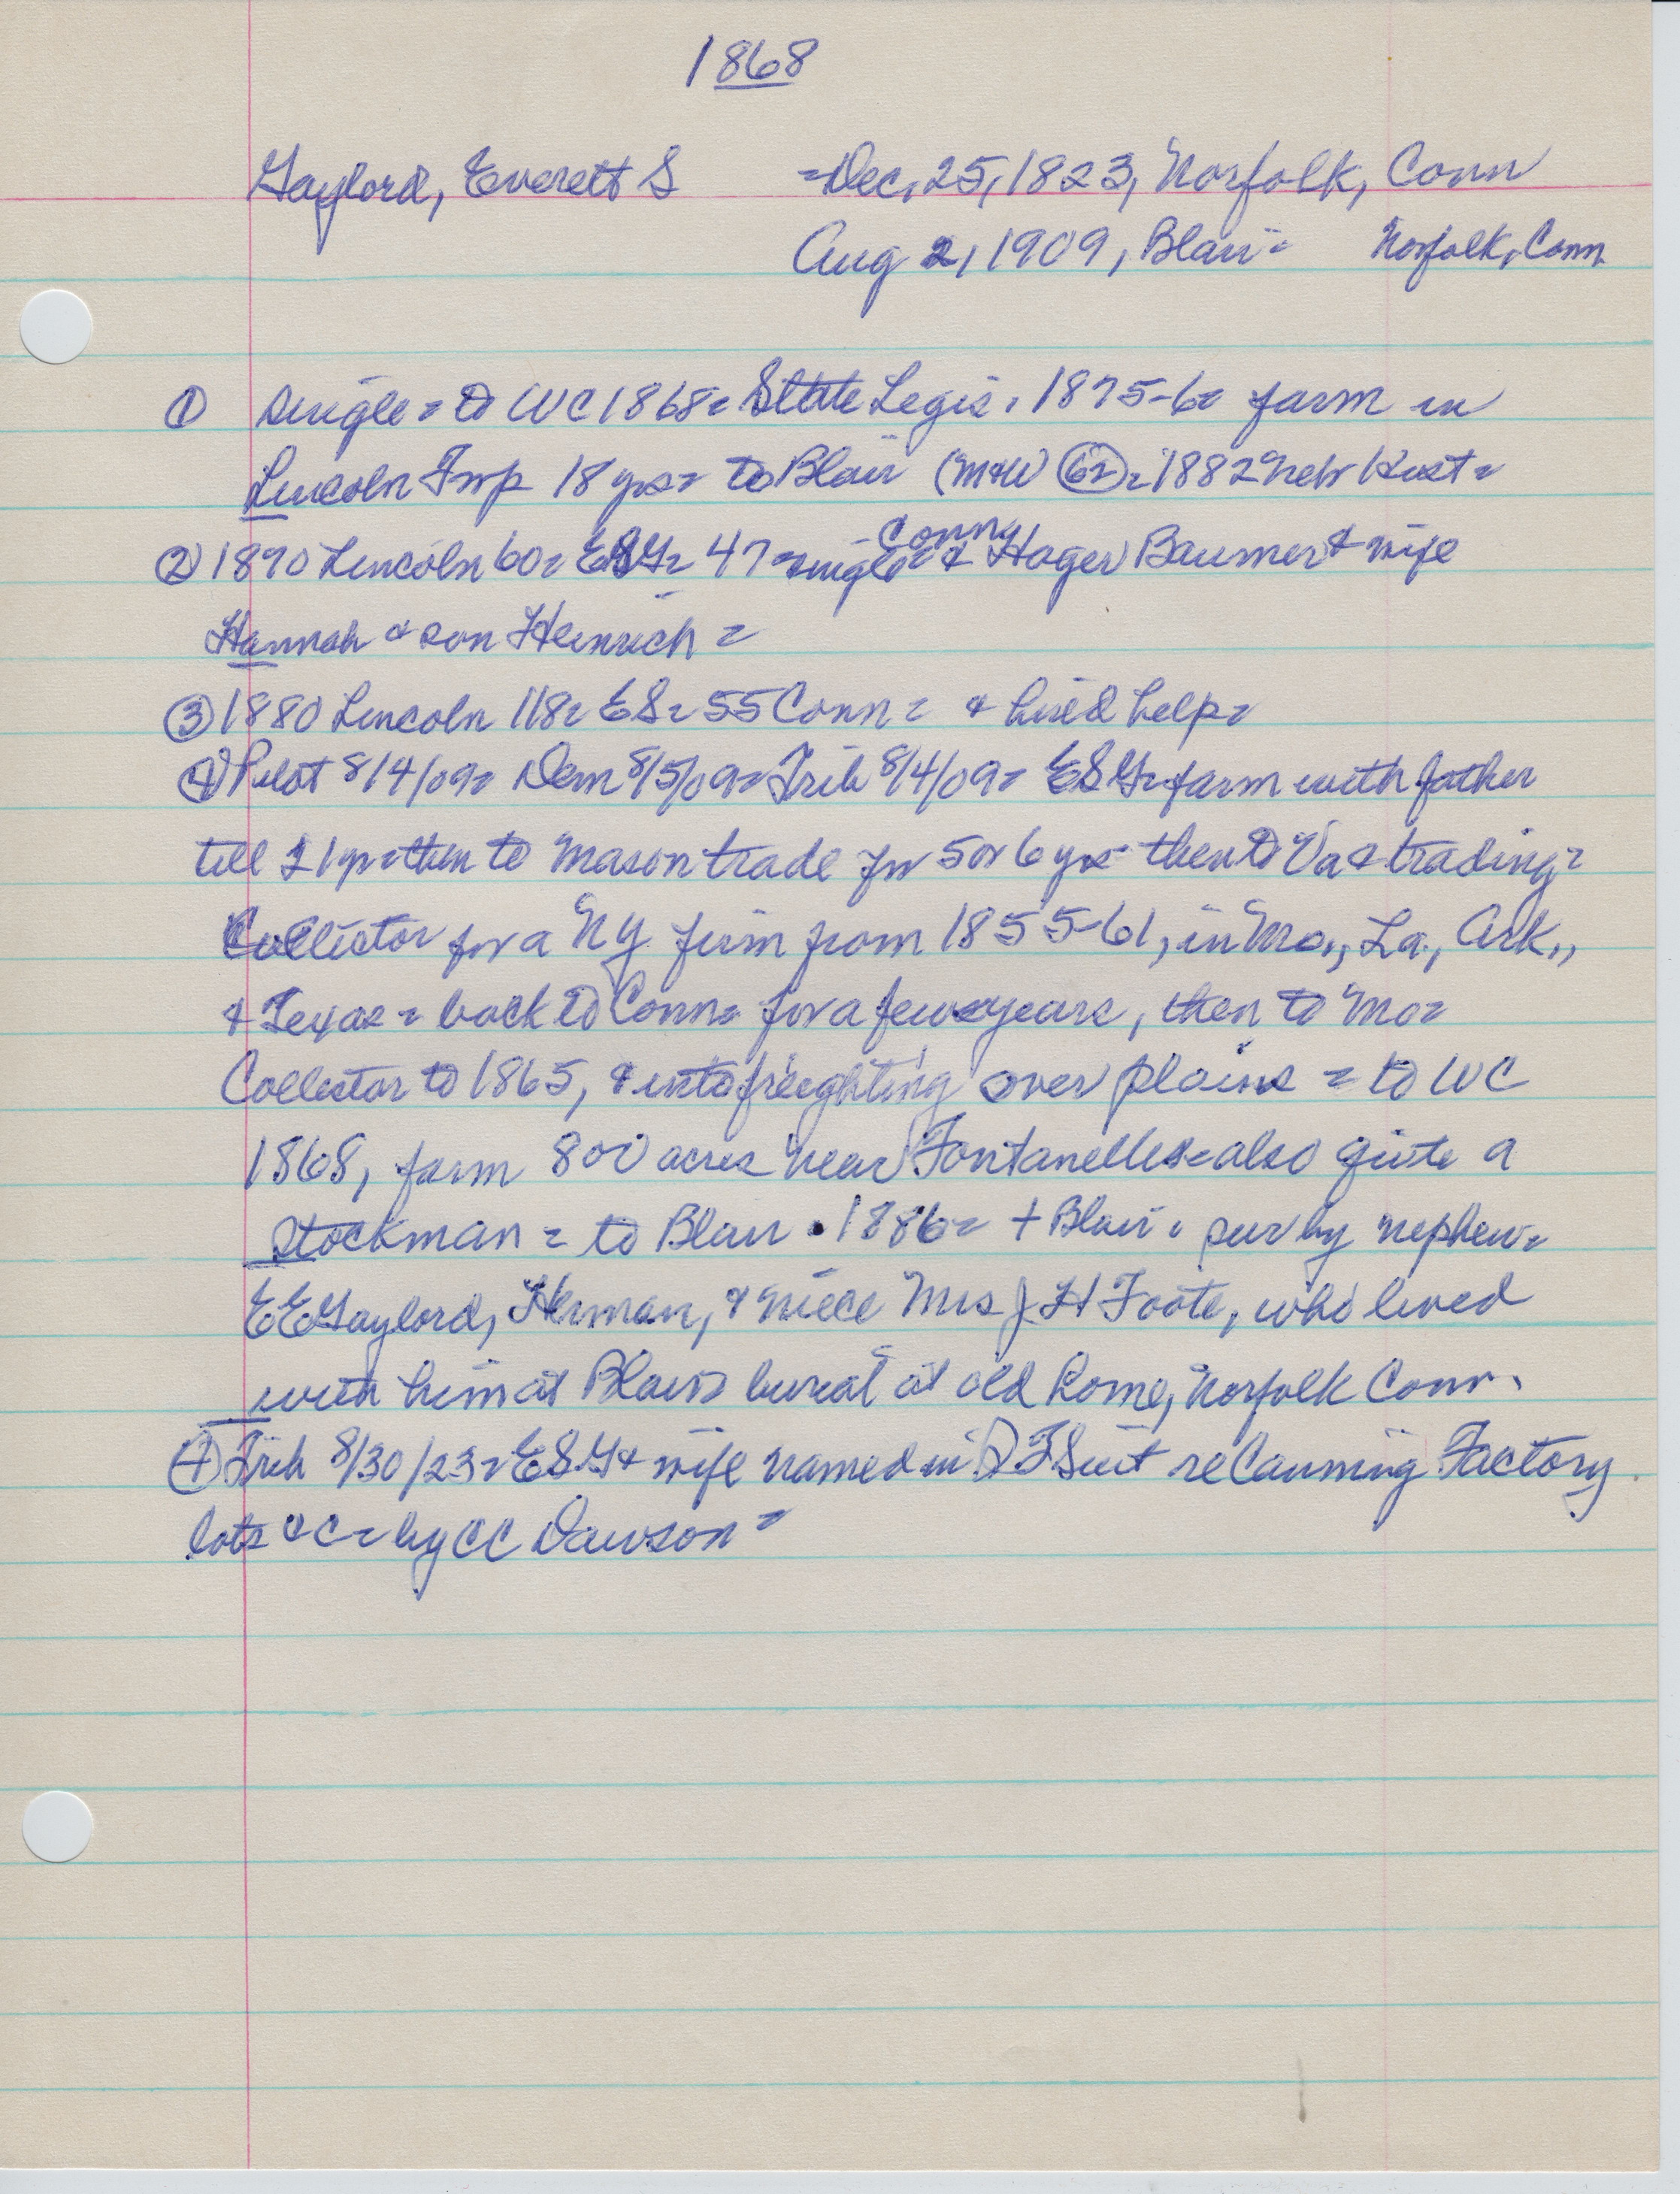 1868
Gaylord, Everett S =Dec, 25, 1823, Norfolk, Conn
Aug 2, 1909, Blair= Norfolk, Conn
① single = to WC 1868= State Legis. 1875-6= farm in
Lincoln Twp 18 yrs= to Blair (M+W 62)= 1882 Neb Hist=
Conn
② 1870 Lincoln 60= ESG= 47=single= & Hager Baumer & wife
Hannah & son Heinrich =
③ 1880 Lincoln 118= ES= 55 Conn= & hired help=
④ Pilot 8/4/09= Dem 8/5/09= Trib 8/4/09= ESG= farm with father
till 21 yr=then to mason trade for 5 or 6 yrs= then to Va & trading=
Collector for a NY firm from 1855-61, in Mo., La., Ark.,
& Texas = back to Conn= for a few years, then to Mo=
Collector to 1865, & into freighting over plains = to WC
1868, farm 800 acres near Fontanelle=also quite a
stockman = to Blair 1886= + Blair= sur by nephew=
EE Gaylord, Herman, & niece Mrs J H Foote, who lived
with him at Blair= burial at old home, Norfolk Conn.
④ Trib 8/30/23= ESG & wife named in suit re Canning Factory
lots &c= by CC Dawson=